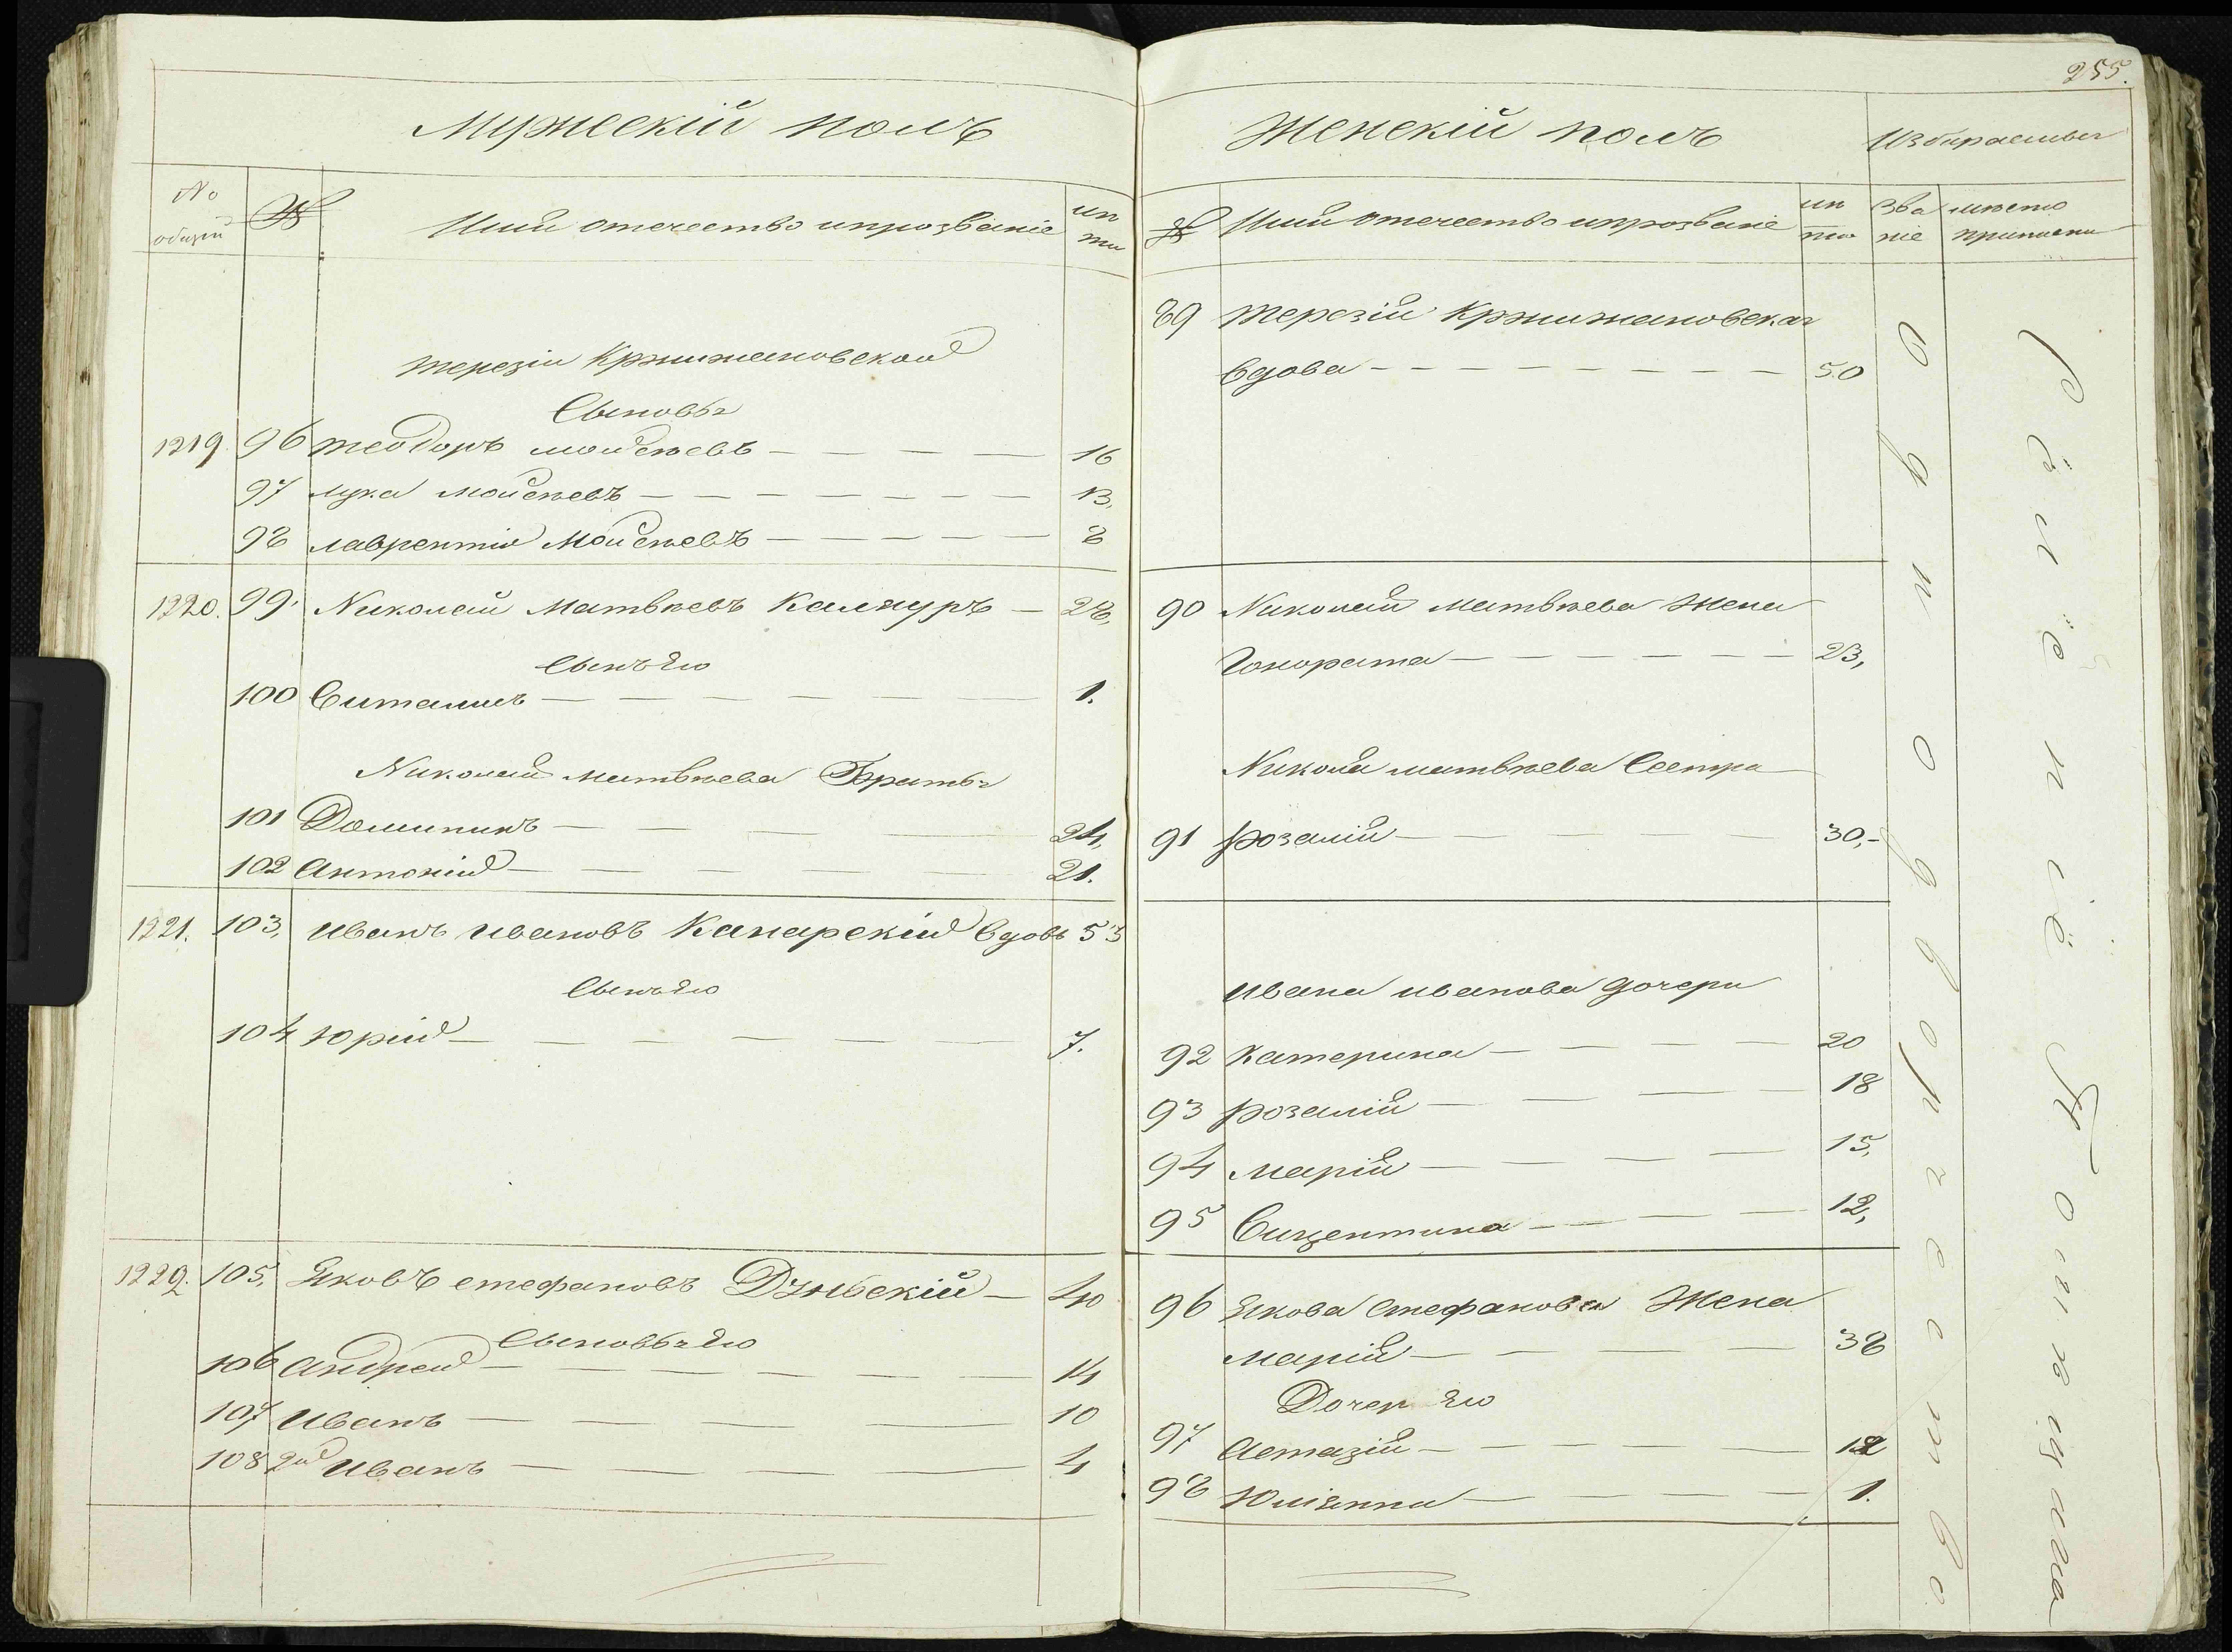 255.
Мужескій полъ
No общій
№
Имя отечество ипрозваніе
лѣта
Терезіи Кржижановской
Сыновья
1219. 96 Теодоръ Мойсѣевъ — 16
97 Лука Мойсѣевъ — 13,
98 Лаврентій Мойсѣевъ — 8
1220. 99. Николай Матвѣевъ — 28,
Сынъ Его
100 Виталисъ — 1.
Николая Матвѣева Братья
101 Доминикъ — 24,
102 Антоній — 21.
1221. 103, Иванъ Ивановъ Канарскій Вдовъ 53
Сынъ Его
104 Юрій — 7.
1222. 105, Яковъ Стефановъ — 40
Сыновья Его
106 Андрей — 14
107 Иванъ — 10
108 2й Иванъ — 4
Женскій полъ
Избираемыя
№
Имя отечество ипрозваніе
лѣта
Зва ніе
мѣсто приписки
89 Терезія Кржижановская
Вдова — 50
90 Николая Матвѣева Жена
Гонората — 23,
Николая Матвѣева Сестра
91 Розалія — 30,-
Ивана Иванова дочери
92 Катерина — 20
93 Розалія — 18
94 Марія — 15,
95 Вицентина — 12,
96 Якова Стефанова Жена
Марія — 38
Дочери Его
97 Астазія — 12
98 Юліянна — 1.
Однодворчество